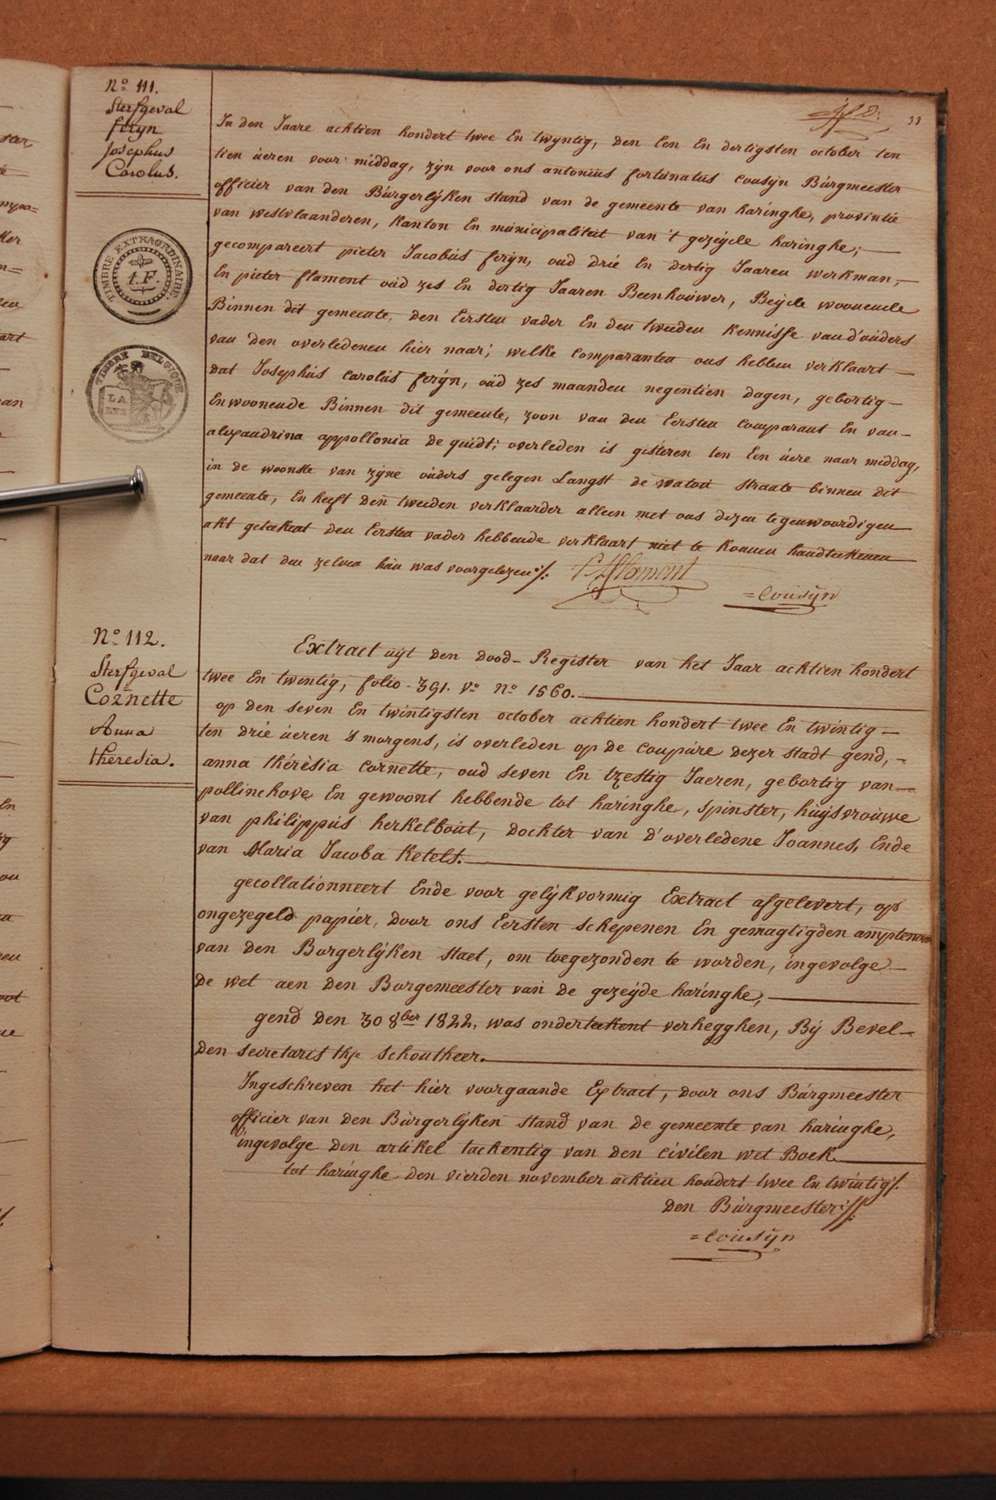 33
Nº 111.
Sterfgeval
feryn
Josephus
Carolus.
TIMBRE EXTRAORDINAIRE
1.F.
TIMBRE BELGIQUE
LA
In den Jaare achtien hondert twee En twyntig, den Een En dertigsten october ten
tien úeren voor middag, zyn voor ons antoniús fortúnatús coúsÿn Búrgmeester
officier van den Búrgerlÿken stand van de gemeente van haringhe, provintie
van westvlaanderen, kanton En múnicipaliteit van 't gezeÿde haringhe;
gecompareert pieter Jacobús ferÿn, oud drie En dertig Jaaren werkman,
En pieter flament oúd zes En dertig Jaaren Beenhoúwer, Beÿde woonende
Binnen dit gemeente, den Eersten vader En den tweeden kennisse van d'oúders
van den overledenen hier naar; welke comparanten ons hebben verklaart
dat Josephús carolús ferÿn, oúd zes maanden negentien dagen, gebortig
En woonende Binnen dit gemeente, zoon van den Eersten comparant En van
alexandrina appollonia de quidt; overleden is gisteren ten Een úere naar middag,
in de woonste van zÿne oúders gelegen Langst de watou straate binnen dit
gemeente, En heeft den tweeden verklaarder alleen met ons dezen tegenwoordigen
akt geteekent den Eersten vader hebbende verklaart niet te konnen handteekenen
naar dat den zelven hún was voorgelezen ./.
P. flament
= Coúsÿn
Nº 112.
Sterfgeval
Cornette
Anna
theresia.
Extract uÿt den dood-Register van het Jaar achtien hondert
twee En twintig, folio 391. vº nº 1560.
op den seven En twintigsten october achtien hondert twee En twintig
ten drie úeren 's morgens, is overleden op de coupúre dezer stadt gend,
anna thérèsia cornette, oud seven En tzestig Jaeren, gebortig van
pollinchove En gewoont hebbende tot haringhe, spinster, húÿsvroúwe
van philippús herkelboút, dochter van d'overledene Joannes, Ende
van Maria Jacoba ketels.
gecollationneert Ende voor gelÿkvormig Extract afgelevert, op
ongezegeld papier, door ons Eersten schepenen En gemagtigden amptenaar
van den Borgerlÿken staet, om toegezonden te worden, ingevolge
de wet aen den Borgemeester van de gezeÿde haringhe,
gend den 30 8ber 1822, was ondertekent verhegghen, Bÿ Bevel
den secretaris schoutheer.
Ingeschreven het hier voorgaande Extract, door ons Búrgmeester
officier van den Búrgerlÿken stand van de gemeente van haringhe,
ingevolge den artikel tachentig van den civilen wet Boek.
tot haringhe den vierden november achtien hondert twee En twintig ./.
Den Búrgmeester ./.
= Coúsÿn